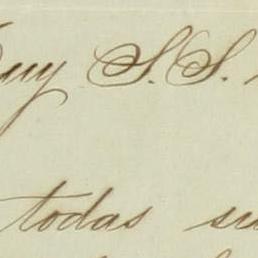 Muy S. S.
todas su